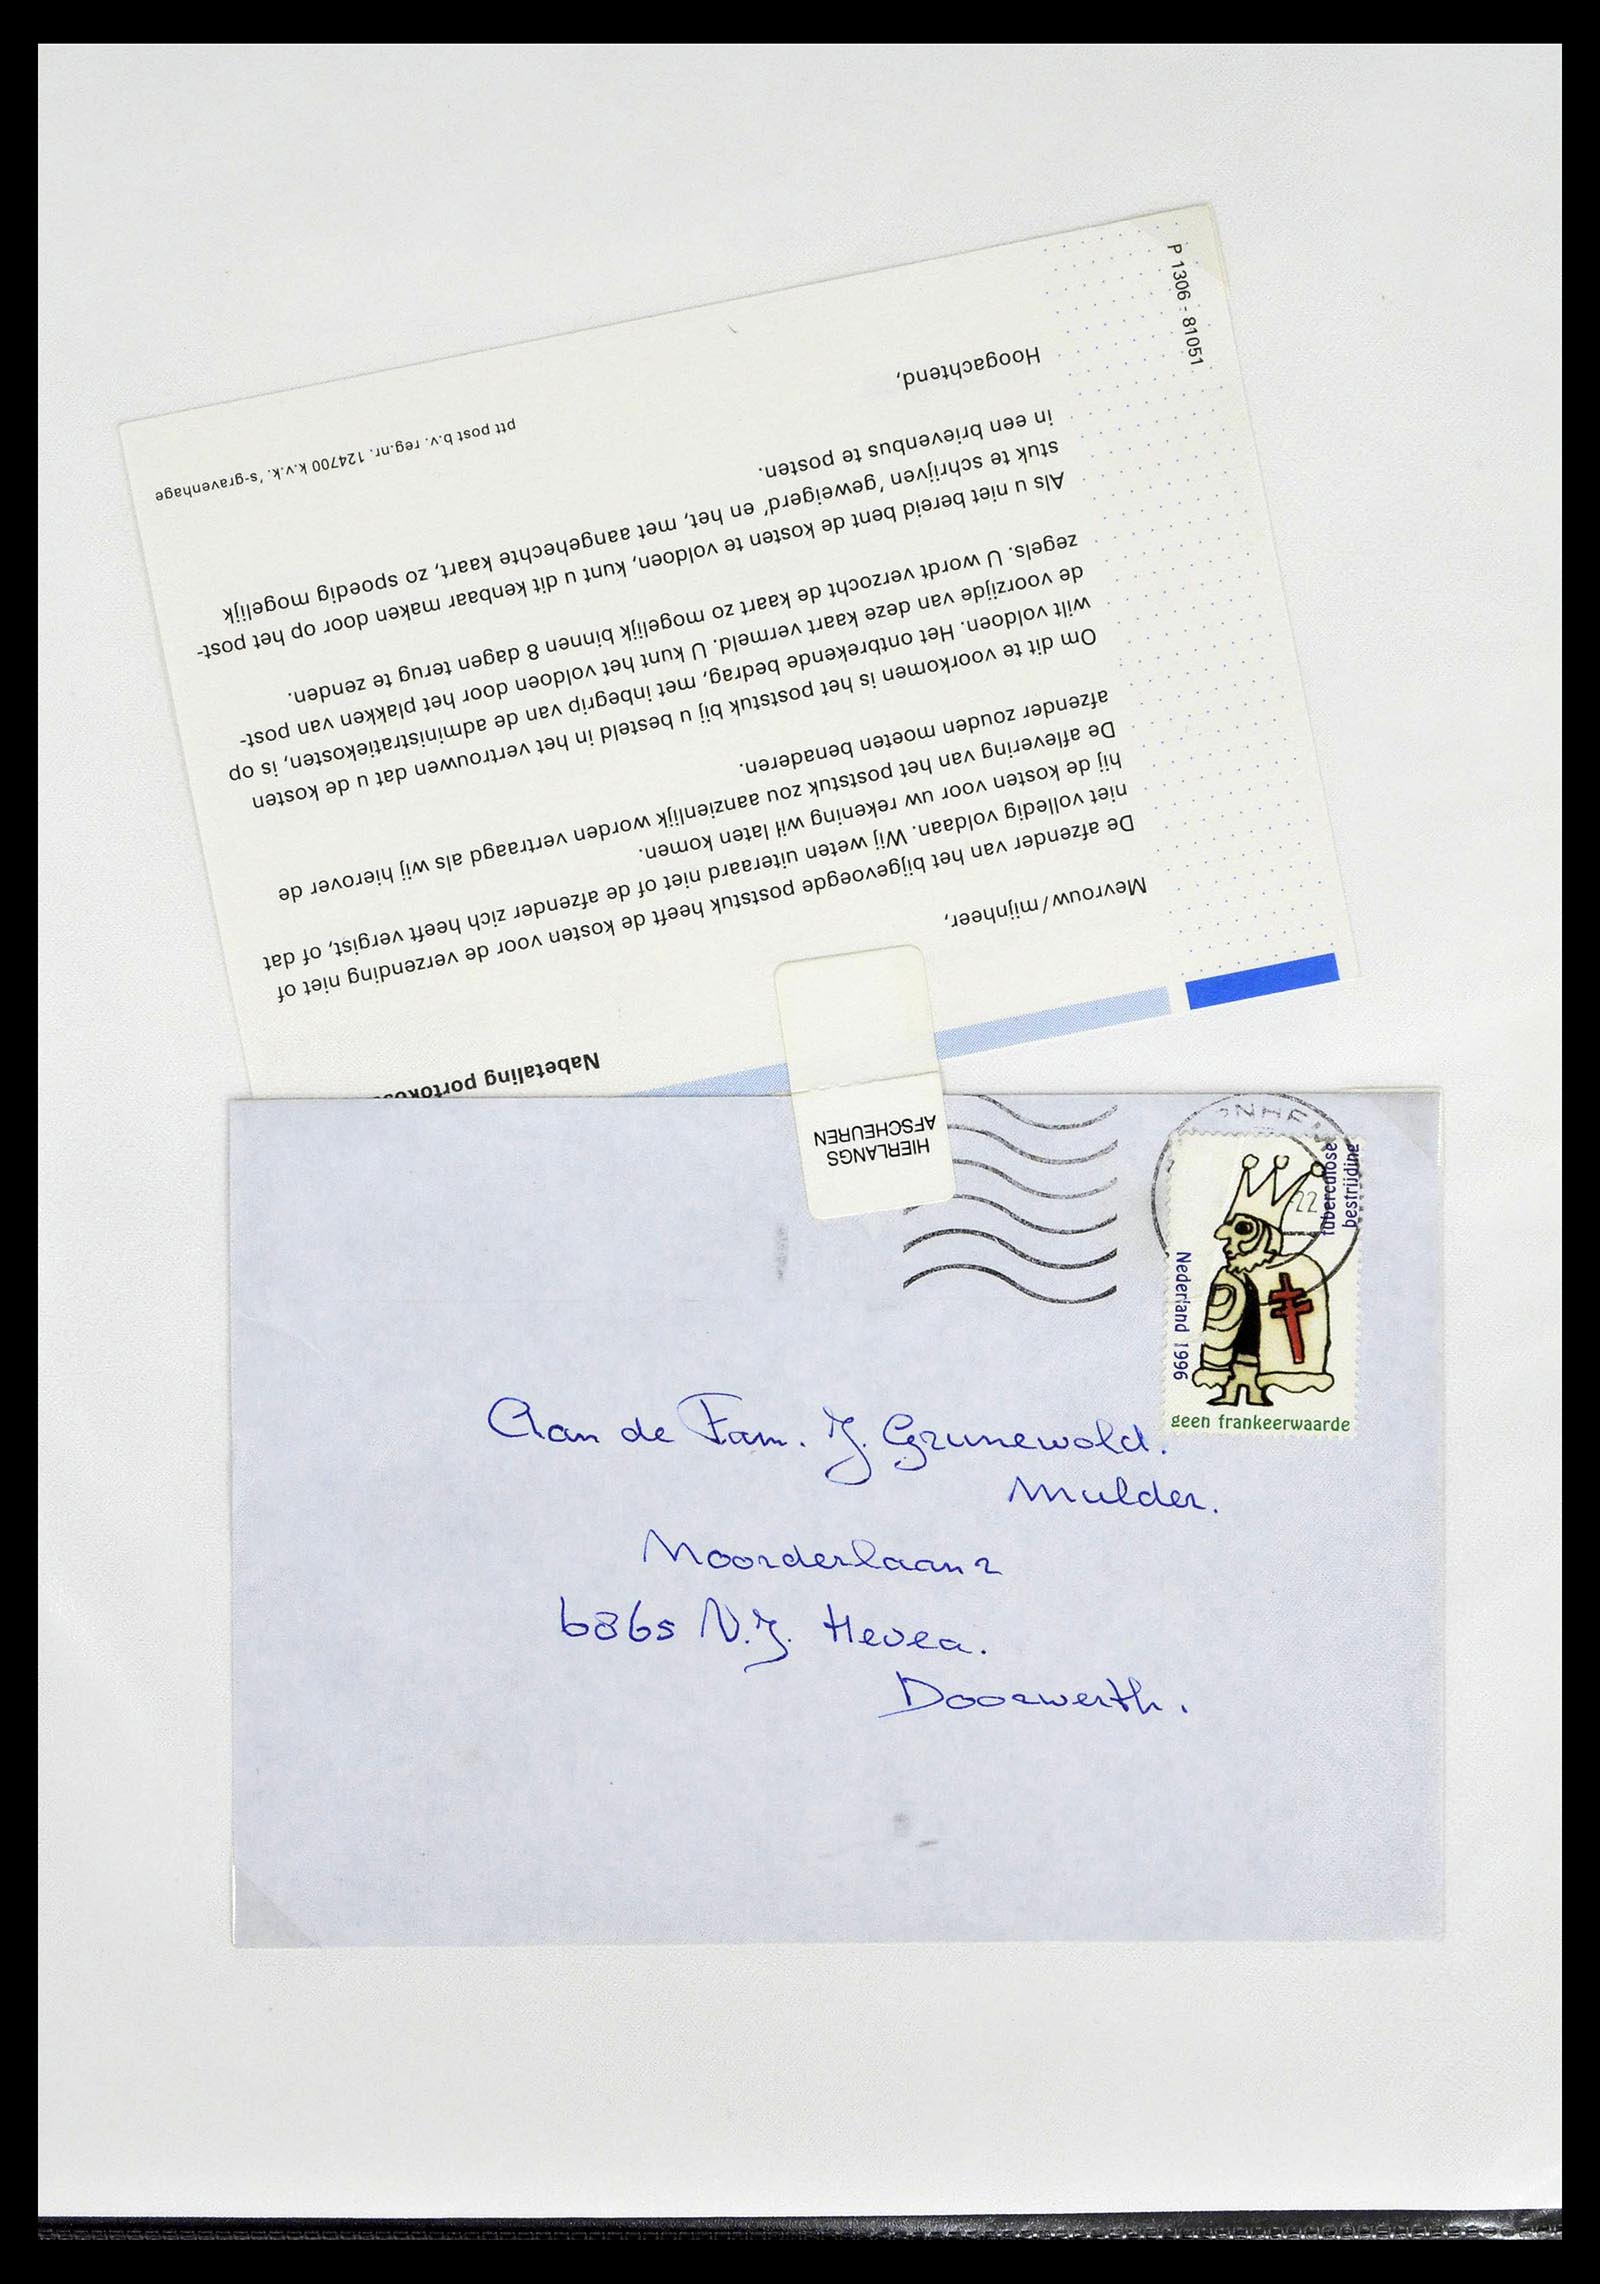 P 1306 - 81051
Nabetaling portoko
Mevrouw/mijnheer,
De afzender van het bijgevoegde poststuk heeft de kosten voor de verzending niet of
niet volledig voldaan. Wij weten uiteraard niet of de afzender zich heeft vergist, of dat
hij de kosten voor uw rekening wil laten komen.
De aflevering van het poststuk zou aanzienlijk worden vertraagd als wij hierover de
afzender zouden moeten benaderen.
Om dit te voorkomen is het poststuk bij u besteld in het vertrouwen dat u de kosten
wilt voldoen. Het ontbrekende bedrag, met inbegrip van de administratiekosten, is op
de voorzijde van deze kaart vermeld. U kunt het voldoen door het plakken van post-
zegels. U wordt verzocht de kaart zo mogelijk binnen 8 dagen terug te zenden.
Als u niet bereid bent de kosten te voldoen, kunt u dit kenbaar maken door op het post-
stuk te schrijven 'geweigerd' en het, met aangehechte kaart, zo spoedig mogelijk
in een brievenbus te posten.
Hoogachtend,
ptt post b.v. reg.nr. 124700 k.v.k. 's-gravenhage
HIERLANGS
AFSCHEUREN
22
tuberculose
bestrijding
Nederland 1996
geen frankeerwaarde
Aan de Fam. J. Grunewold.
Mulder.
Noorderlaan 2
6865 N.J. Hevea.
Doorwerth.